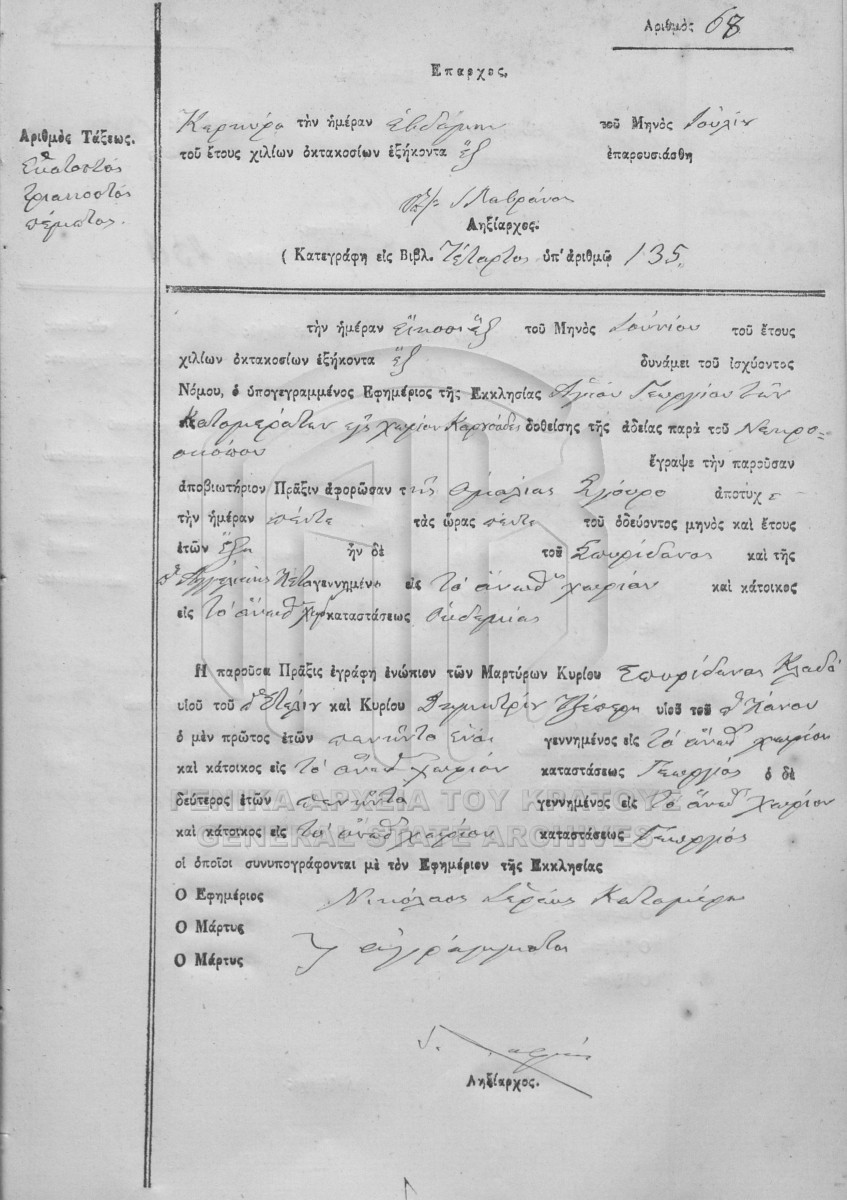 Αριθμὸς 68
Επαρχος,
Αριθμὸς Τάξεως.
Ἑκατοστὸς
τριακοστὸς
πέμπτος.
Κερκύρᾳ τὴν ἡμέραν ἑβδόμην τοῦ Μηνὸς Ἰουλίου
τοῦ ἔτους χιλίων ὀκτακοσίων ἑξήκοντα ἓξ ἐπαρουσιάσθη
Λαβράνος
Ληξίαρχος.
( Κατεγράφη εἰς Βιβλ. Τέταρτος ὑπ' ἀριθμῷ 135.
τὴν ἡμέραν εἴκοσι ἓξ τοῦ Μηνὸς Ἰουνίου τοῦ ἔτους
χιλίων ὀκτακοσίων ἑξήκοντα ἓξ δυνάμει τοῦ ἰσχύοντος
Νόμου, ὁ ὑπογεγραμμένος Εφημέριος τῆς Εκκλησίας Ἁγίου Γεωργίου τῶν
Καταμεράτων εἰς χωρίον Καρυσάδες δοθείσης τῆς ἀδείας παρὰ τοῦ Νεκρο=
σκόπου ἔγραψε τὴν παροῦσαν
ἀποβιωτήριον Πρᾶξιν ἀφορῶσαν τῆς Ἀμαλίας ἀποτυχ
τὴν ἡμέραν πέντε τὰς ὥρας πέντε τοῦ ὁδεύοντος μηνὸς καὶ ἔτους
ἐτῶν ἕξη ἦν δὲ τοῦ Σπυρίδωνος καὶ τῆς
γεννημένο εἰς τὸ ἄνωθ χωρίον καὶ κάτοικος
εἰς τὸ ἄνωθ χωρ καταστάσεως Οὐδεμίας
Η παροῦσα Πρᾶξις ἐγράφη ἐνώπιον τῶν Μαρτύρων Κυρίου Σπυρίδωνος Κλαδᾶ
υἱοῦ τοῦ π Στέλιου καὶ Κυρίου Δημητρίου υἱοῦ τοῦ π Πάνου
ὁ μὲν πρῶτος ἐτῶν πενῆντα ἐννέα γεννημένος εἰς τὸ ἄνωθ χωρίον
καὶ κάτοικος εἰς τὸ ἄνωθ χωρίον καταστάσεως Γεωργὸς ὁ δὲ
δεύτερος ἐτῶν πενῆντα γεννημένος εἰς τὸ ἄνωθ χωρίον
καὶ κάτοικος εἰς τὸ ἄνωθ χωρίον καταστάσεως Γεωργὸς
οἱ ὁποῖοι συνυπογράφονται μὲ τὸν Εφημέριον τῆς Εκκλησίας
Ο Εφημέριος Νικόλαος Ἱερεὺς Καταμέρης
Ο Μάρτυς
Ο Μάρτυς ἀγράμματοι
Ληξίαρχος.
ΓΕΝΙΚΑ ΑΡΧΕΙΑ ΤΟΥ ΚΡΑΤΟΥΣ
GENERAL STATE ARCHIVES